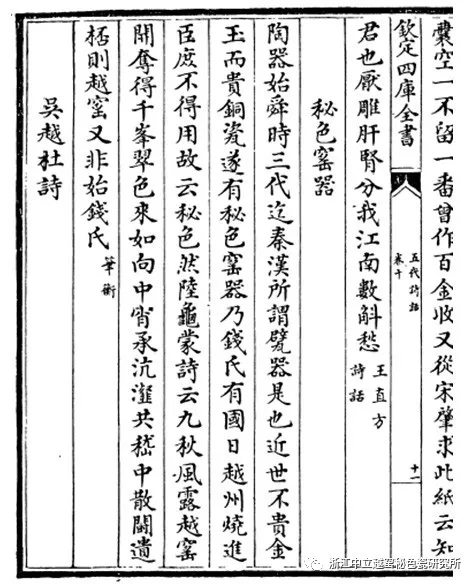 囊空一不留一番曾作百金收又從宋肇求此紙云知
欽定四庫全書
五代詩話
卷十
十一
君也厭雕肝腎分我江南數斛愁
王直方
詩話
秘色窰器
陶器始舜時三代迄秦漢所謂甓器是也近世不貴金
玉而貴銅瓷遂有秘色窰器乃錢氏有國日越州燒進
臣庶不得用故云秘色然陸龜蒙詩云九秋風露越窰
開奪得千峯翠色來如向中宵承沆瀣共嵇中散鬭遺
桮則越窰又非始錢氏
筆衡
吳越社詩
浙江中立越窑秘色瓷研究所